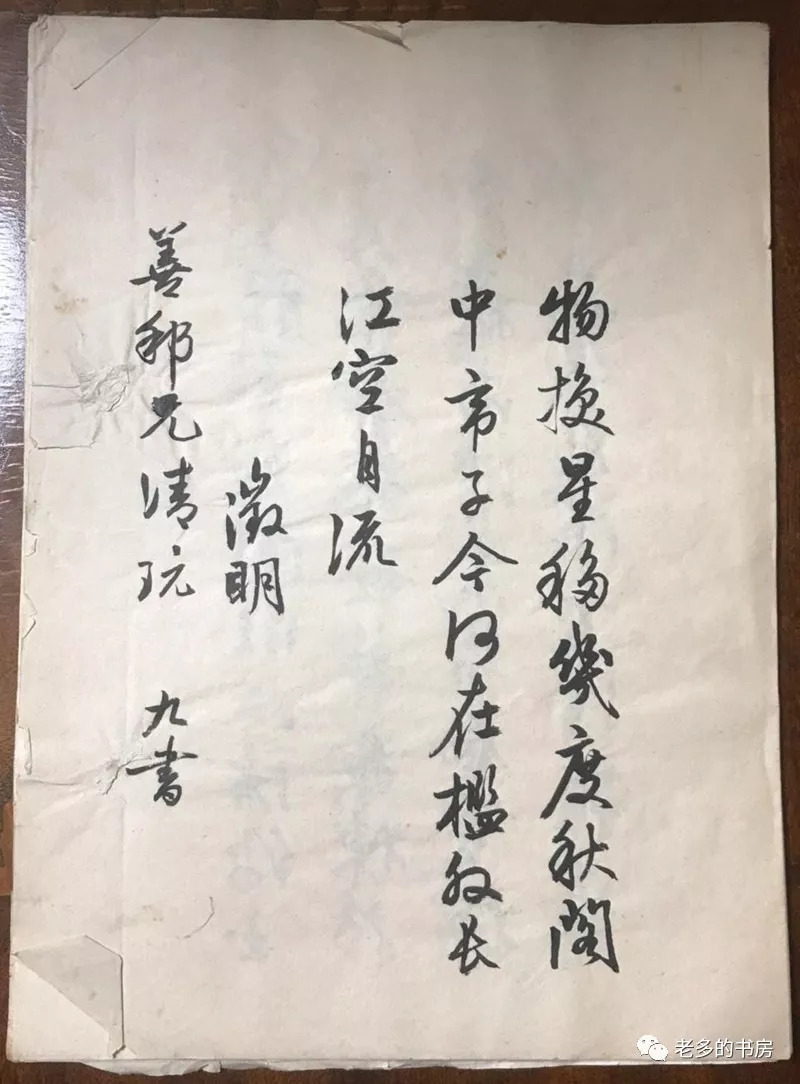 物换星移幾度秋閣
中帝子今何在檻外长
江空自流
徵明
善邦兄清玩 九書
老多的书房